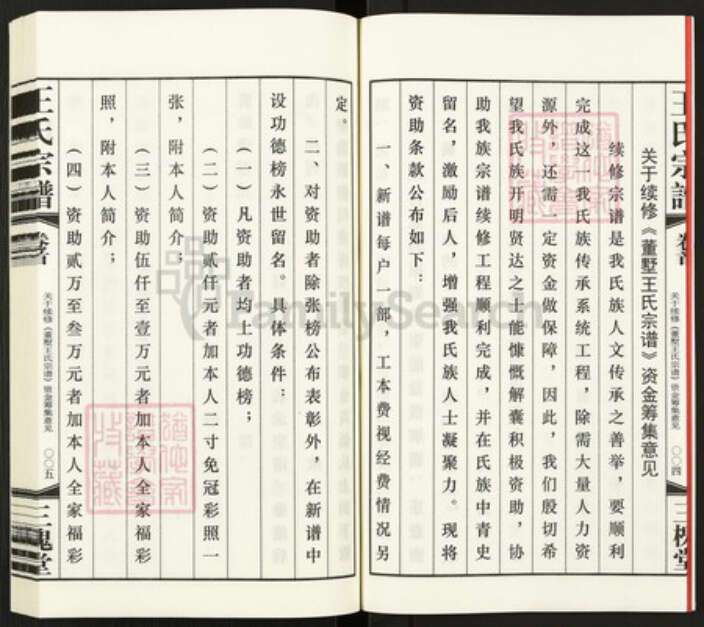 王氏宗谱
卷首
关于续修《董墅王氏宗谱》资金筹集意见
〇〇四
三槐堂
关于续修《董墅王氏宗谱》资金筹集意见
续修宗谱是我氏族人文传承之善举，要顺利
完成这一我氏族传承系统工程，除需大量人力资
源外，还需一定资金做保障，因此，我们殷切希
望我氏族开明贤达之士能慷慨解囊积极资助，协
助我族宗谱续修工程顺利完成，并在氏族中青史
留名，激励后人，增强我氏族人士凝聚力。现将
资助条款公布如下：
一、新谱每户一部，工本费视经费情况另
定。
二、对资助者除张榜公布表彰外，在新谱中
设功德榜永世留名。具体条件：
（一）凡资助者均上功德榜；
（二）资助贰仟元者加本人二寸免冠彩照一
张，附本人简介；
（三）资助伍仟至壹万元者加本人全家福彩
照，附本人简介；
（四）资助贰万至叁万元者加本人全家福彩
王氏宗谱
卷首
关于续修《董墅王氏宗谱》资金筹集意见
〇〇五
三槐堂
FamilySearch